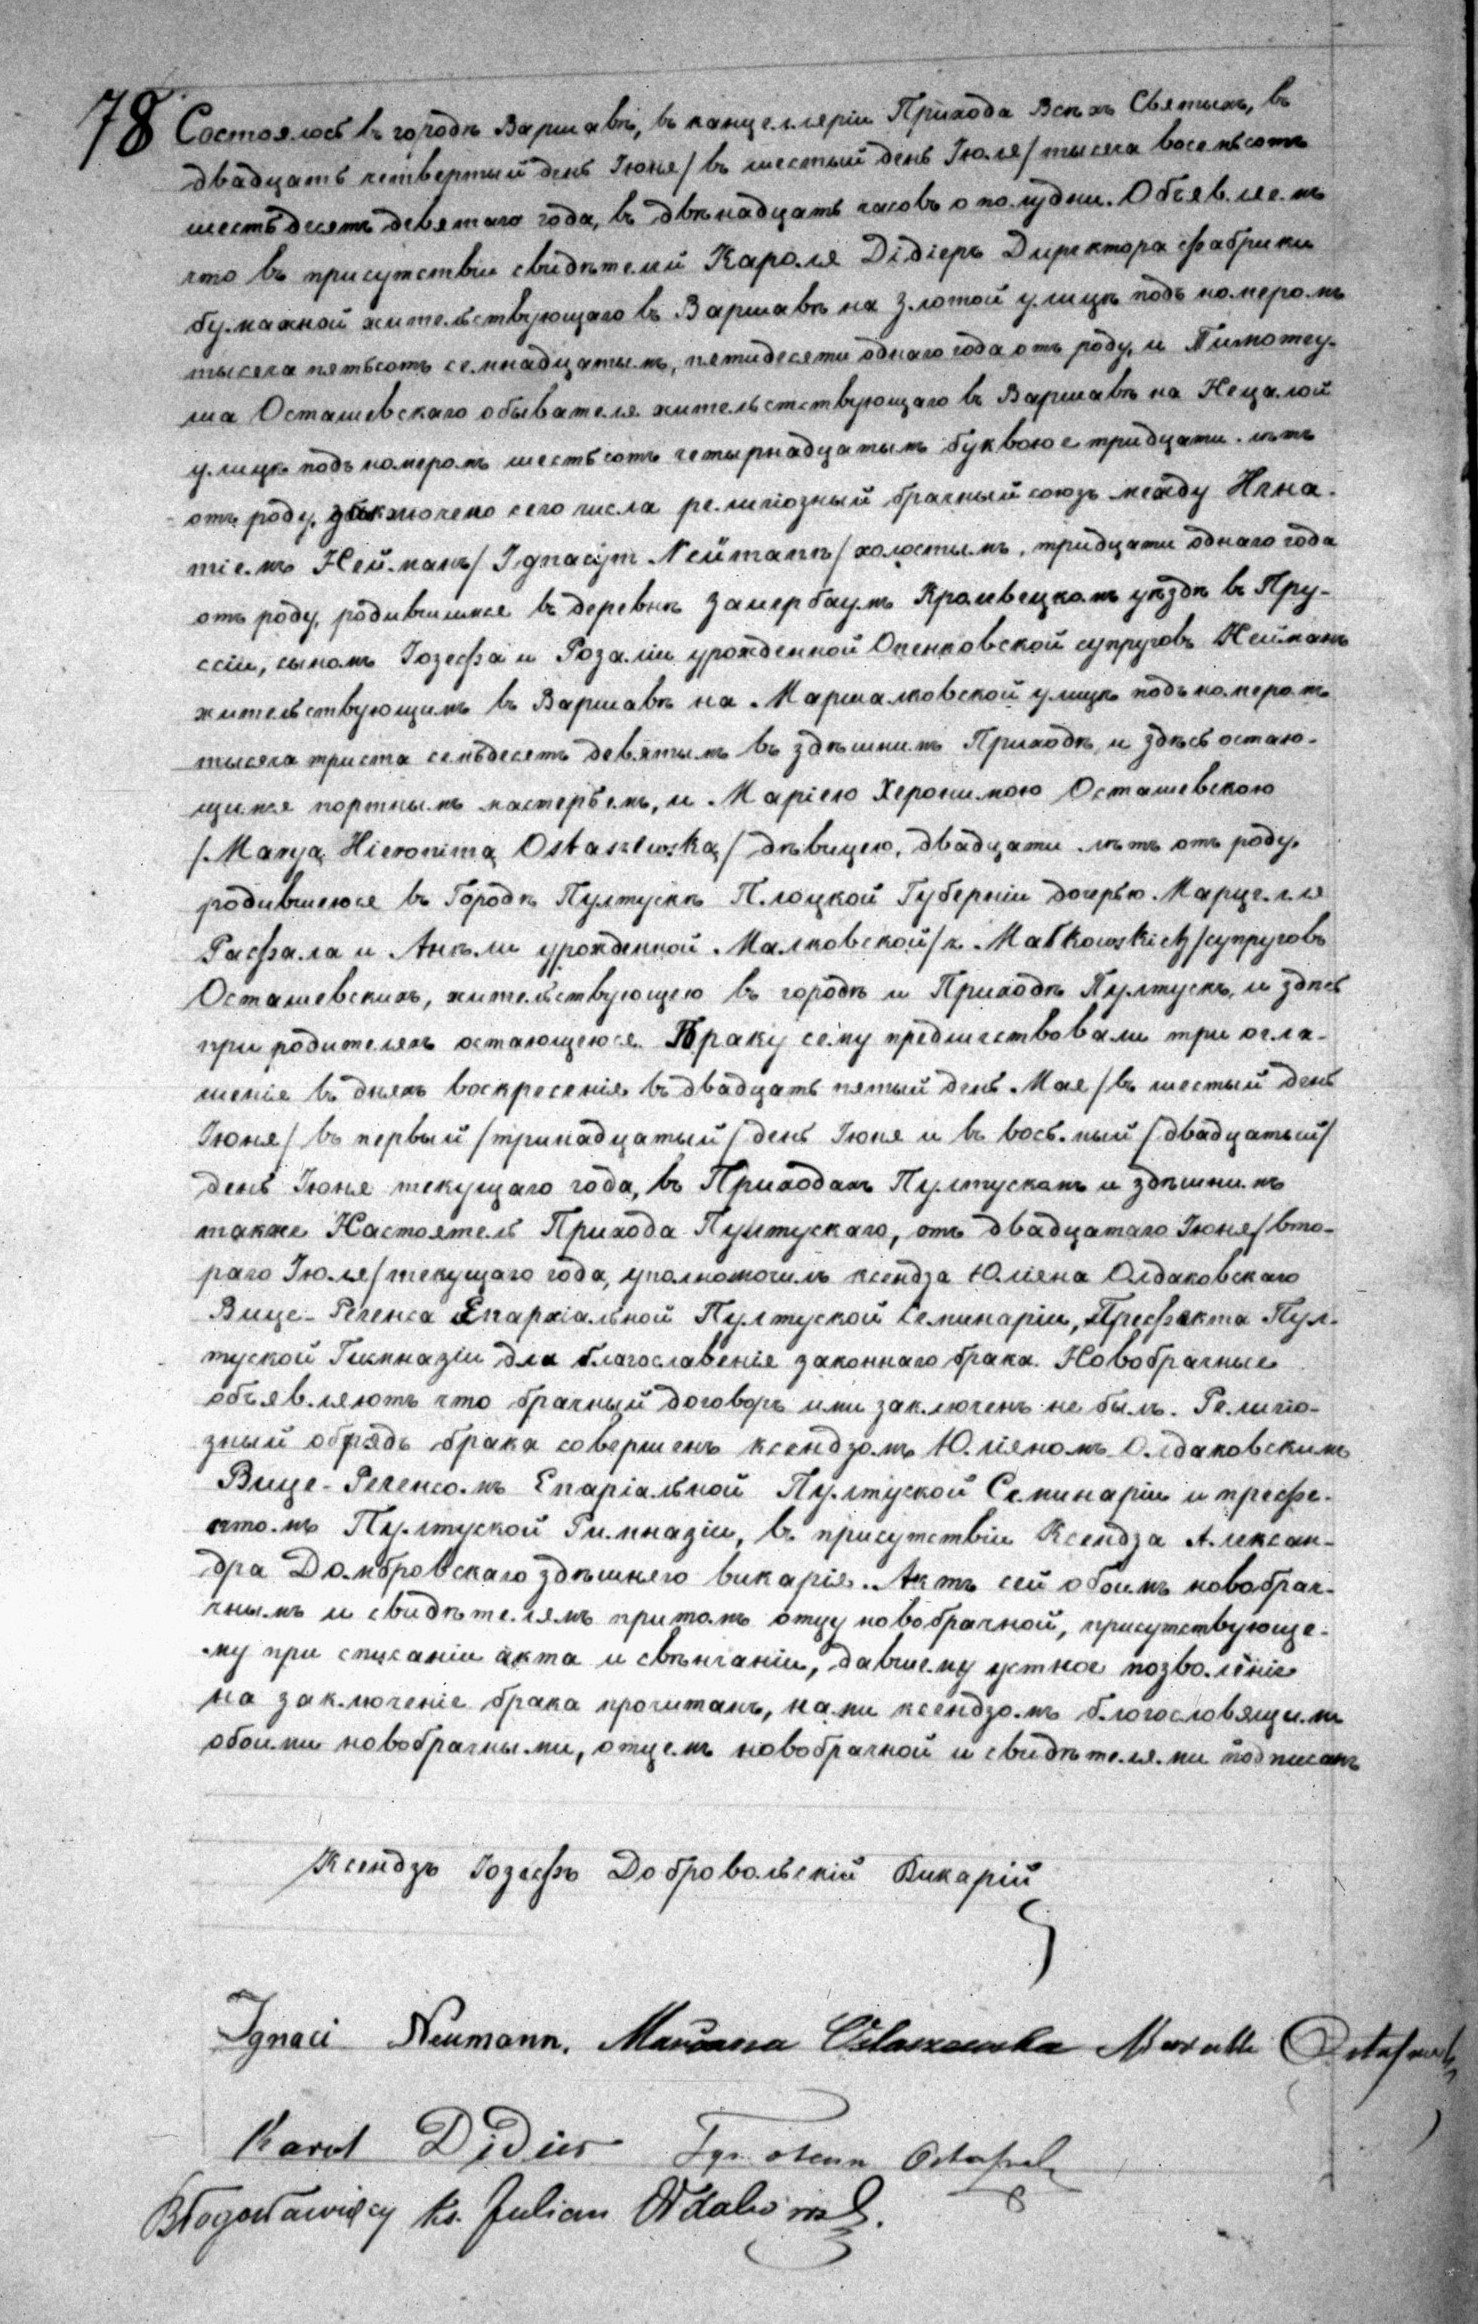 78 Состоялось въ городѣ Варшавѣ, въ канцелляріи Прихода Всѣхъ Святыхъ, въ
двадцать четвертый день Іюня / въ шестый день Іюля / тысяча восемьсотъ
шестьдесятъ девятаго года, въ двѣнадцать часовъ о полудни. Объявляемъ
что въ присутствіи свидѣтелей Кароля Дідіеръ Директора фабрики
бумажной жительствующаго въ Варшавѣ на Злотой улицѣ подъ номеромъ
тысяча пятьсотъ семнадцатымъ, пятидесяти одного года отъ роду, и Тимотеу-
ша Осташевскаго обывателя жительстствующаго въ Варшавѣ на Нецалой
улицѣ подъ номеромъ шестьсотъ четырнадцатымъ буквою е тридцати лѣтъ
отъ роду, заключено сего числа религіозный брачный союзъ между Игна-
тіемъ Нейманъ / Ignacym Neümann / холостымъ, тридцати одного года
отъ роду, родившимся въ деревнѣ Зауербаумъ Кролевецкомъ уѣздѣ въ Пру-
ссіи, сыномъ Іозефа и Розаліи урожденной Опенковской супруговъ Нейманъ
жительствующимъ въ Варшавѣ на Маршалковской улицѣ подъ номеромъ
тысяча триста семьдесятъ девятымъ въ здѣшнимъ Приходѣ, и здѣсь остаю-
щимся портнымъ мастерьемъ, и Маріею Херонимою Осташевскою
/ Maryą Hieronimą Ostaszewską / дѣвицею, двадцати лѣтъ отъ роду,
родившеюся въ Городѣ Пултускѣ Плоцкой Губерніи дочерью Марцелля
Рафала и Анѣли урожденной Малковской / z Małkowskich / супруговъ
Осташевскихъ, жительствующею въ городѣ и Приходѣ Пултускъ, и здѣсь
при родителяхъ остающеюся. Браку сему предшествовали три огла-
шенія въ дняхъ воскресенія въ двадцать пятый день Мая / въ шестый день
Іюня / въ первый / тринадцатый / день Іюня и въ восьмый / двадцатый /
день Іюня текущаго года, въ Приходахъ Пултускомъ и здѣшнимъ
также Настоятель Прихода Пултускаго, отъ двадцатаго Іюня / вто-
раго Іюля / текущаго года, уполномочилъ ксендза Юліяна Олдаковскаго
Вице-Регенса Епархіальной Пултуской Семинаріи, Префекта Пул-
туской Гимназіи для благославеніе законнаго брака. Новобрачные
объявляютъ что брачный договоръ ими заключенъ не былъ. Религіо-
зный обрядъ брака совершенъ ксендзомъ Юліяномъ Олдаковскимъ
Вице-Регенсомъ Епаріальной Пултуской Семинаріи и префе-
ктомъ Пултуской Гимназіи, въ присутствіи Ксендза Алексан-
дра Домбровскаго здѣшнего викарія. Актъ сей обоимъ новобрач-
чнымъ и свидѣтелямъ притомъ отцу новобрачной, присутствующе-
му при списаніи акта и свѣнчаніи, давшему устное позволеніе
на заключеніе брака прочитанъ, нами ксендзомъ благословящимъ
обоими новобрачными, отцемъ новобрачной и свидѣтелями подписанъ
Ксендзъ Іозефъ Добровольскій Викарій
Ignaci Neumann. Maryanna Ostaszewska Marcelli Ostaszewski
Karol Didier Tymoteusz Ostaszewski
Błogosławiący Ks. Julian Ołdakowski.